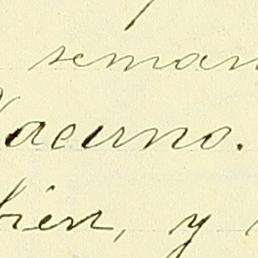 seman
acerno.
bien, y